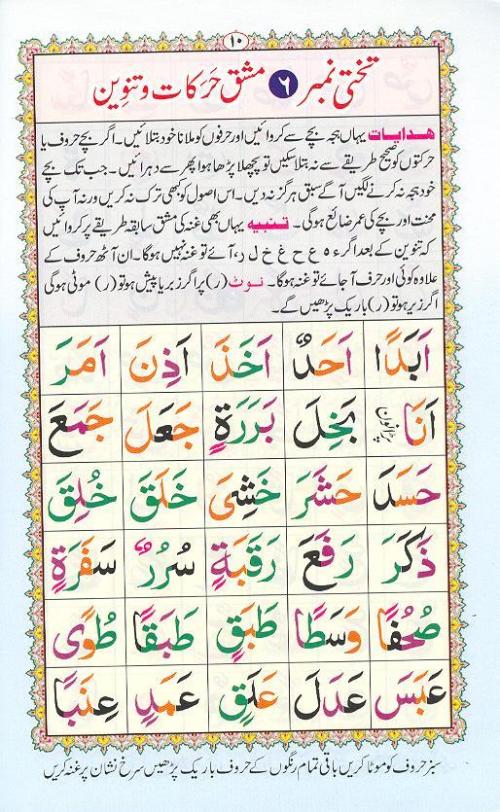 ۱۰
تختی نمبر ۶ مشق حرکات و تنوین
ھدایات یہاں ہجہ بچے سے کروائیں اور حرفوں کو ملانا خود بتلائیں۔ اگر بچے حروف یا
حرکتوں کو صحیح طریقے سے نہ بتلا سکیں تو پچھلا پڑھا ہوا پھر سے دہرائیں۔ جب تک بچے
خود ہجہ نہ کرنے لگیں آگے سبق ہرگز نہ دیں۔ اس اصول کو بھی ترک نہ کریں ورنہ آپ کی
محنت اور بچے کی عمر ضائع ہوگی۔ تنبیہ یہاں بھی غنہ کی مشق سابقہ طریقے پر کروائیں
کہ تنوین کے بعد اگر ء ہ ع ح غ خ ل ر، آئے تو غنہ نہیں ہوگا۔ ان آٹھ حروف کے
علاوہ کوئی اور حرف آجائے تو غنہ ہوگا۔ نوٹ (ر) پر اگر زبر یا پیش ہو تو (ر) موٹی ہوگی
اگر زیر ہو تو (ر) باریک پڑھیں گے۔
اَبَدًا اَحَدٌ اَخَذَ اَذِنَ اَمَرَ
اَنَا بَخِلَ بَرَرَةٍ جَعَلَ جَمَعَ
حَسَدَ حَشَرَ خَشِیَ خَلَقَ خُلِقَ
ذَکَرَ رَفَعَ رَقَبَةٍ سُرُرٌ سَفَرَةٍ
صُحُفًا وَسَطًا طَبَقٍ طَبَقًا طُوًی
عَبَسَ عَدَلَ عَلَقٍ عَمَدٍ عِنَبًا
سبز حروف کو موٹا کریں باقی تمام رنگوں کے حروف باریک پڑھیں سرخ نشان پر غنہ کریں